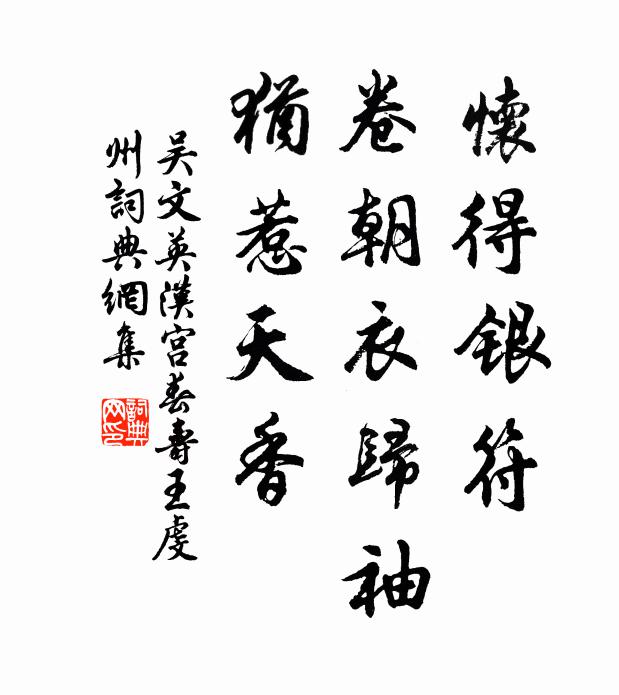 懷得銀符
卷朝衣歸袖
猶惹天香
吳文英漢宮春壽王虔
州詞典網集
詞典
网印